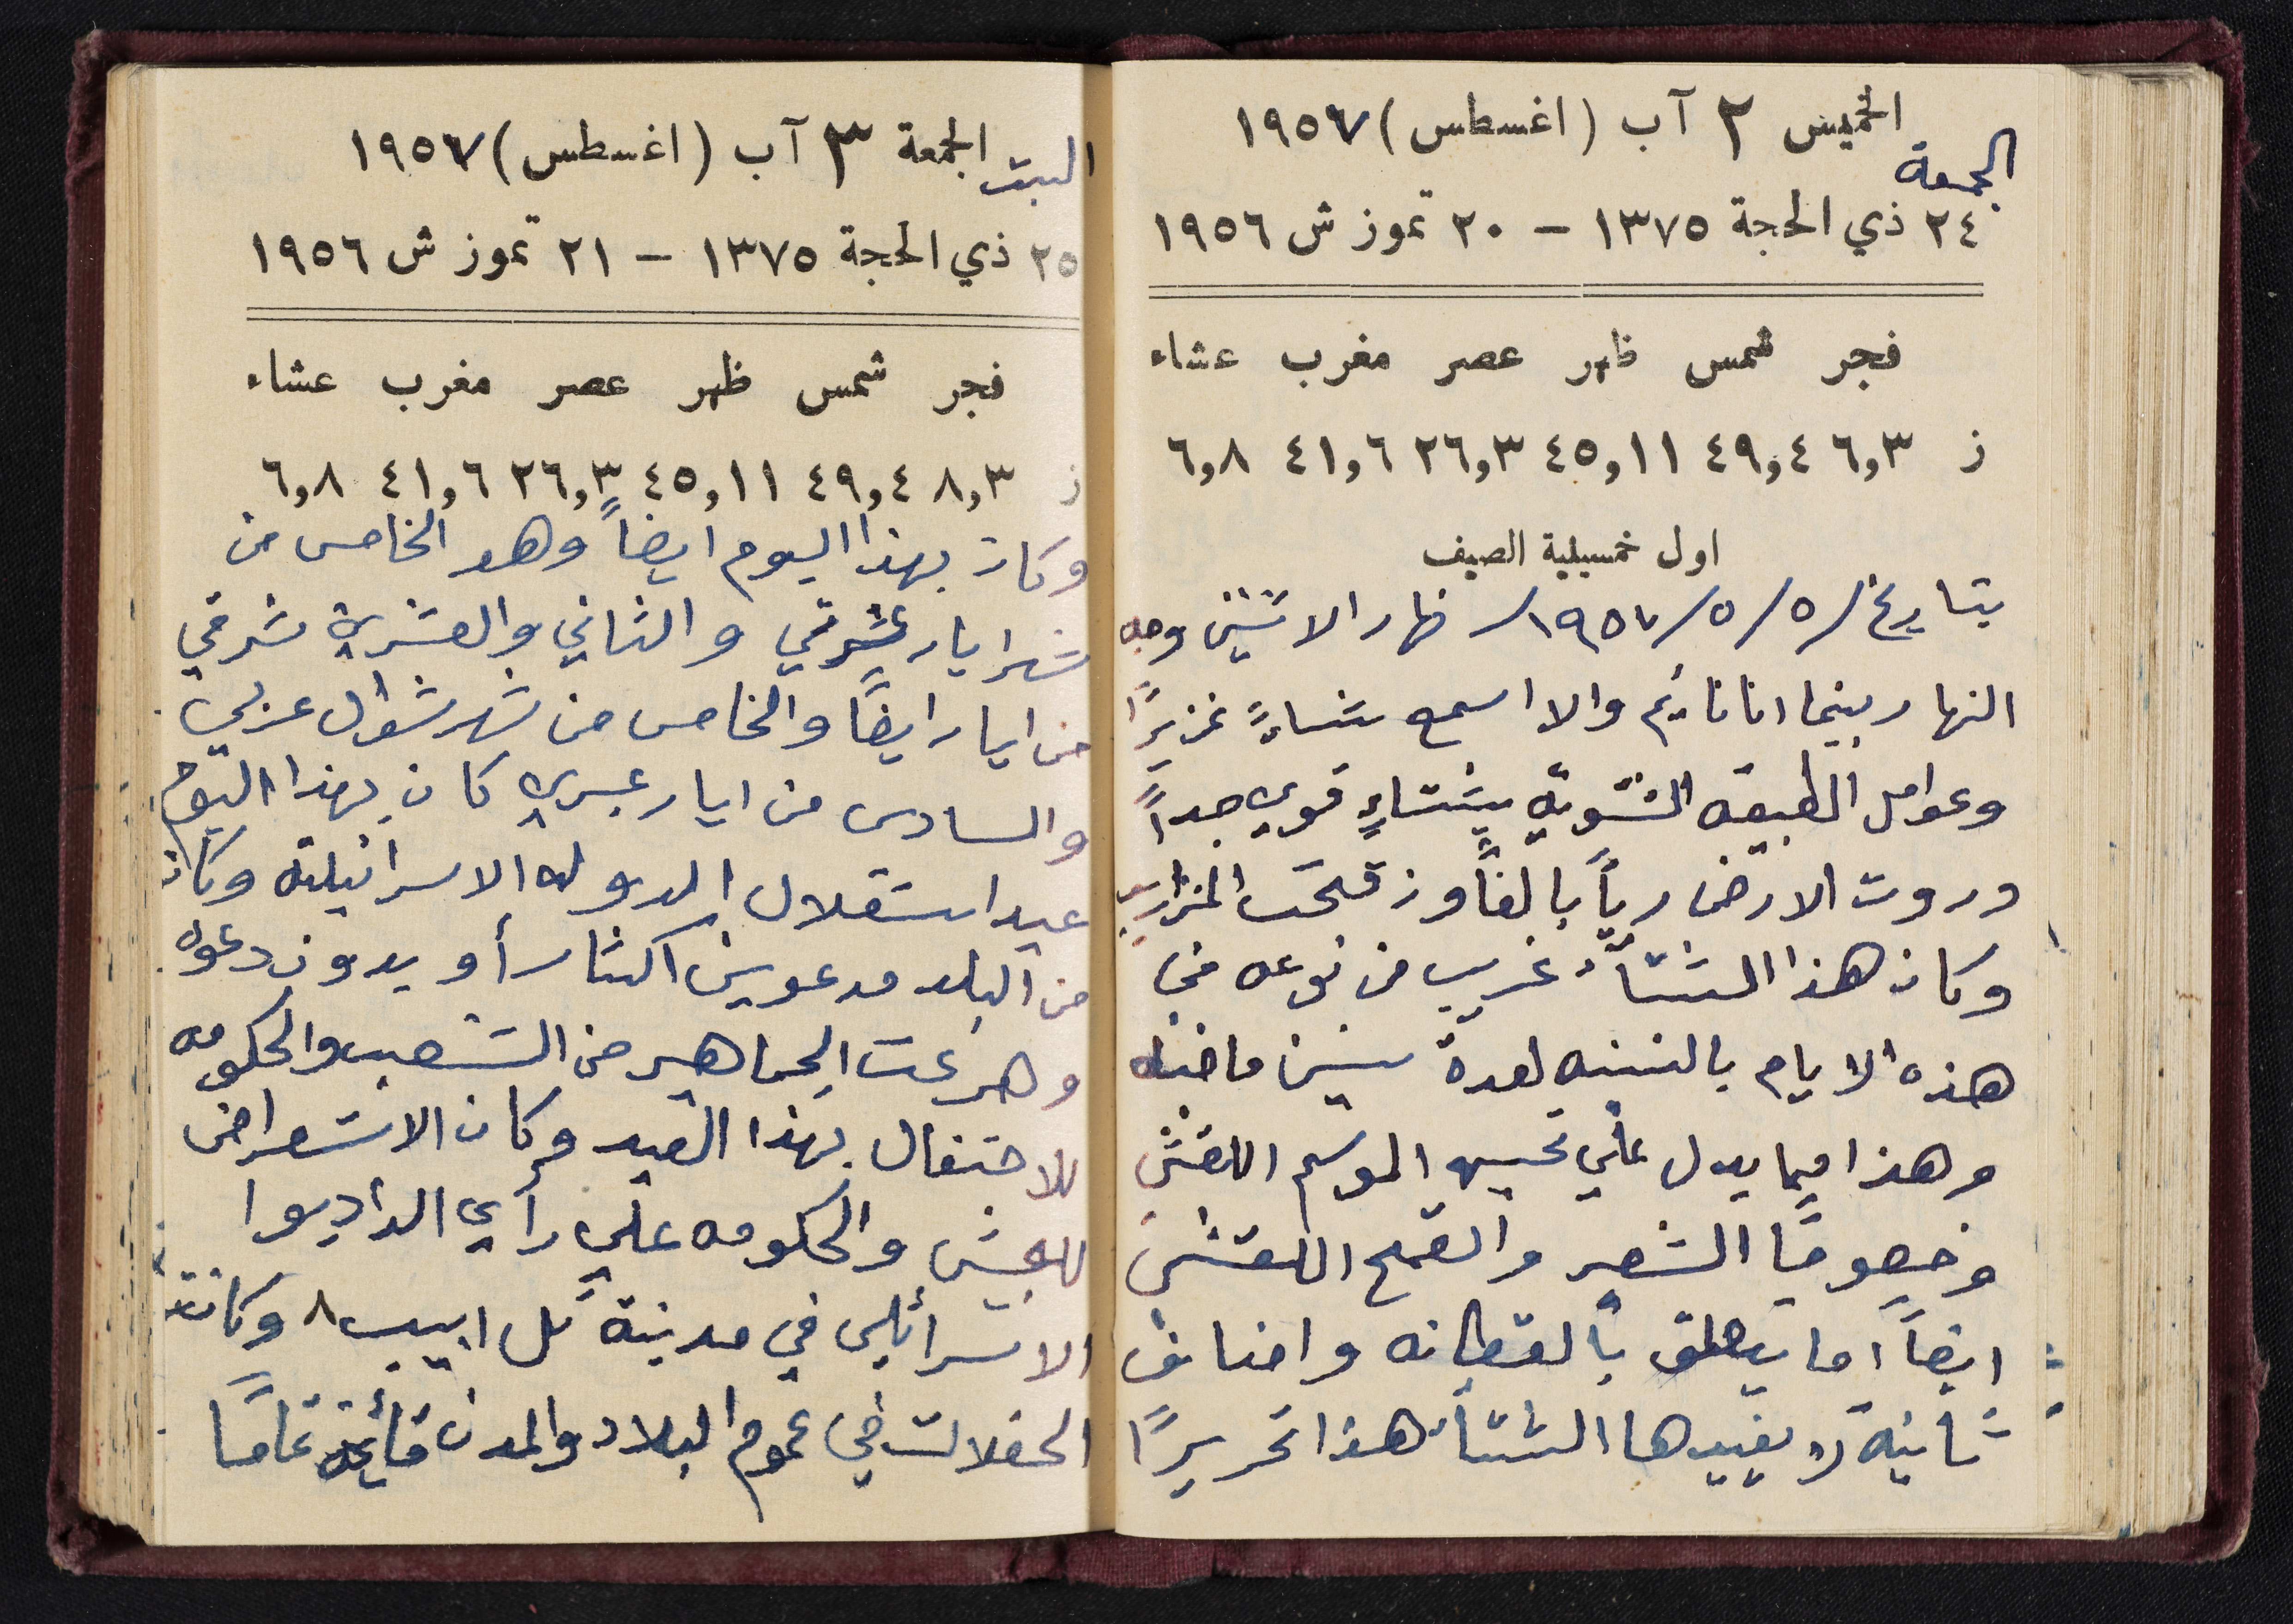 الخميس ٢ آب (اغسطس) ١٩٥٧
الجمعة
٢٤ ذي الحجة ١٣٧٥ – ٢٠ تموز ش ١٩٥٦
فجر شمس ظهر عصر مغرب عشاء
ز ٦,٣ ٤٩,٤ ٤٥,١١ ٢٦,٣ ٤١,٦ ٦,٨
اول خمسيلية الصيف
بتاريخ ١٩٥٧/٥/٥/ نهار الاثنين وجه
النهار بينما انا نايم والا اسمع شتاءً غزيرًا
وعوامل الطبيعه الشتويه بشتاءٍ قوي جداً
وروت الارض رياً بالغاً وزقحت المزاريب
وكان هذا الشتآء غريب من نوعه في
هذه الايام بالنسبه لعدة سنين ماضيه
وهذا مما يدل علي تحسين الموسم اللقش
وخصوصًا الشعير والقمح اللقش
ايضاً اما يتعلق بالقطانه واصناف
ثانية لا يفيدها الشتأ هذا تحريرًا
السبت الجمعة ٣ آب (اغسطس) ١٩٥٧
٢٥ ذي الحجة ١٣٧٥ – ٢١ تموز ش ١٩٥٦
فجر شمس ظهر عصر مغرب عشاء
ز ٨,٣ ٤٩,٤ ٤٥,١١ ٢٦,٣ ٤١,٦ ٦,٨
وكان بهذا اليوم ايضاً وهو الخامس من
شهر ايار والثاني والعشرين شرقي
من ايار ايضًا والخامس من شهر شوال عربي
والسادس من ايار عبري كان بهذا اليوم
عيد استقلال الدوله الاسرائيليه وكان
من البلد مدعوين اكثار أو بدون دعوه
وهرعت الجماهير من الشعب والحكومه
للاحتفال بهذا العيد وكان الاستعراض
للجيش والحكومه علي رأي الراديوا
الاسرائيلي في مدينة تل ابيب ٨ وكانت
الحفلات في عموم البلاد والمدن قائمة تمامًا